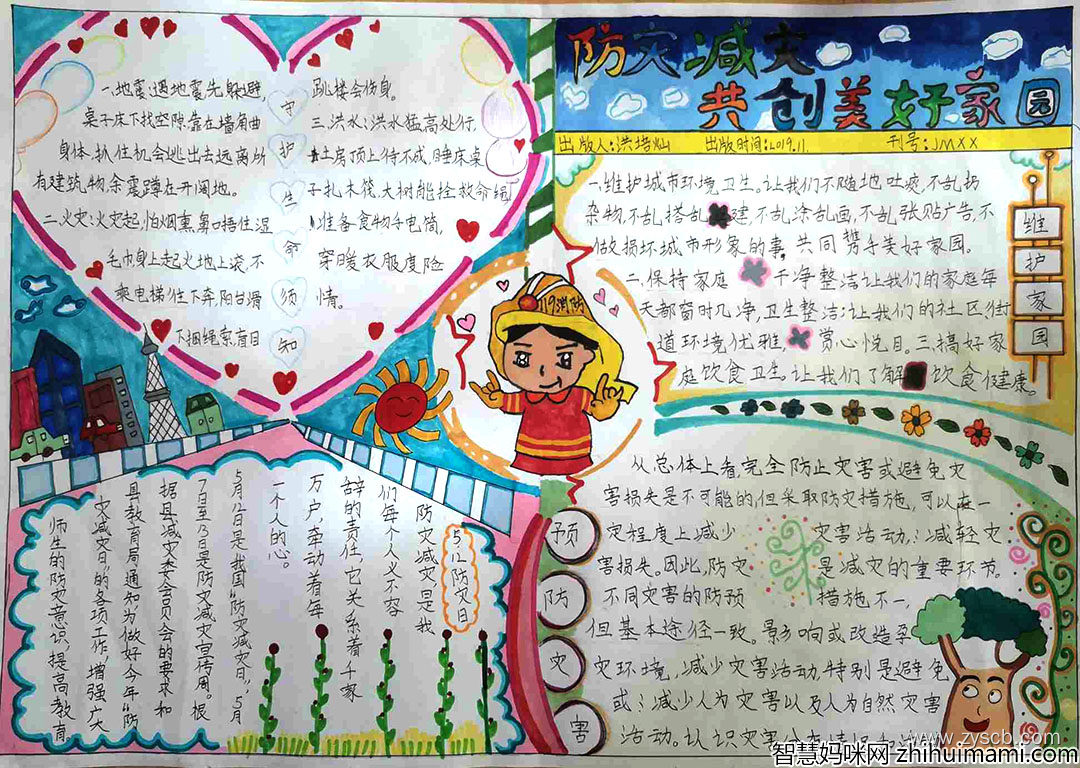 防灾减灾
共创美好家园
出版人:洪培灿 出版时间:2019.11. 刊号:JMXX
守护生命须知
一.地震:遇地震先躲避,
桌子床下找空隙靠在墙角曲
身体.抓住机会逃出去远离所
有建筑物.余震蹲在开阔地。
二.火灾:火灾起,怕烟熏,鼻口捂住湿
毛巾身上起火地上滚,不
乘电梯往下奔,阳台滑
下捆绳索盲目
跳楼会伤身。
三.洪水:洪水猛高处行,
土房顶上待不成,睡床桌
子扎木筏,大树能拴救命绳,
准备食物手电筒,
穿暖衣服度险
情。
维护家园
一.维护城市环境卫生。让我们不随地吐痰,不乱扔
杂物,不乱搭乱建,不乱涂乱画,不乱张贴广告,不
做损坏城市形象的事,共同携手美好家园。
二.保持家庭 干净整洁让我们的家庭每
天都窗明几净,卫生整洁:让我们的社区街
道环境优雅, 赏心悦目。三.搞好家
庭饮食卫生。让我们了解 饮食健康。
119消防
5.12防灾日
防灾减灾是我
们每个人义不容
辞的责任,它关系着千家
万户,牵动着每
一个人的心。
5月12日是我国“防灾减灾日”,5月
7日至13日是防灾减灾宣传周。根
据县减灾委会员会的要求和
县教育局通知为做好今年“防
灾减灾日”的各项工作,增强广大
师生的防灾意识,提高教育
预防灾害
从总体上看,完全防止灾害或避免灾
害损失是不可能的,但采取防灾措施,可以在一
定程度上减少 灾害活动,减轻灾
害损失。因此,防灾 是减灾的重要环节。
不同灾害的防预 措施不一
但基本途径一致。影响或改造孕
灾环境,减少灾害活动,特别是避免
或减少人为灾害以及人为自然灾害
活动。认识灾害
www.zyscb.com
智慧妈咪网 zhihuimami.com